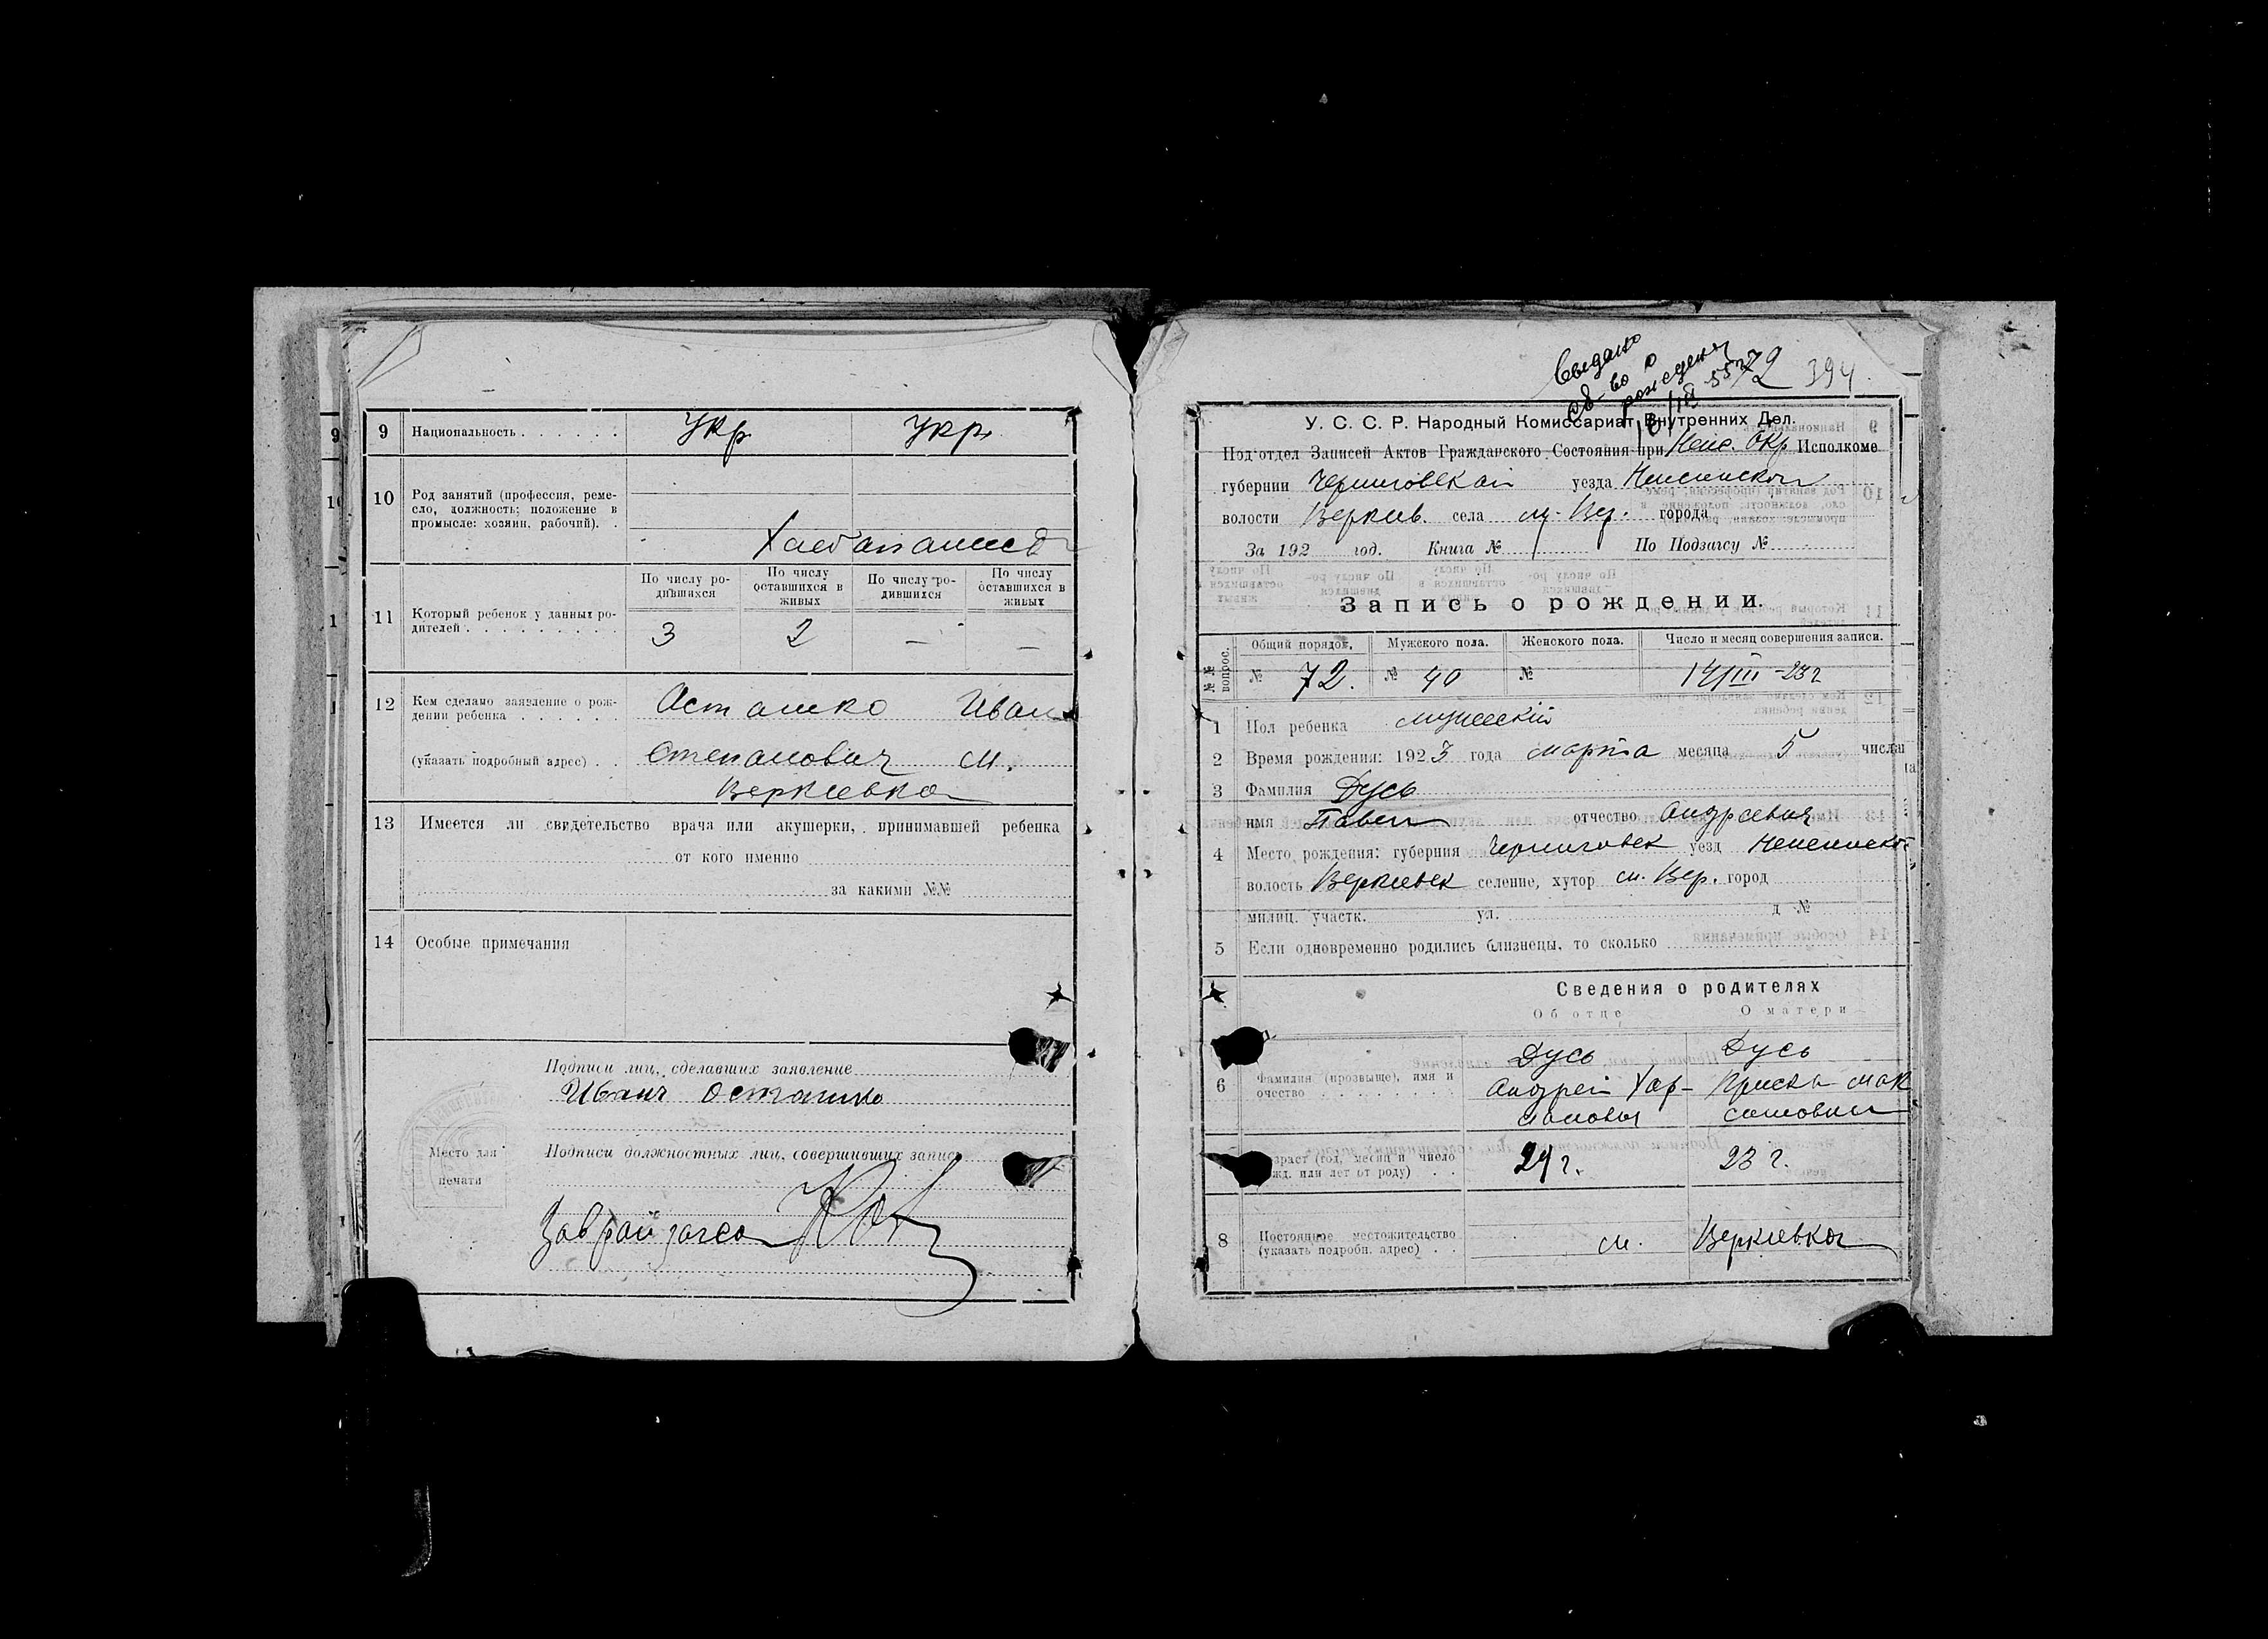 9 Национальность . . . . . . Укр Укр.
10 Род занятий (профессия, реме-
сло, должность; положение в
промысле: хозяин, рабочий). .
Хлебопашест
По числу ро-
дившихся
По числу
оставшихся в
живых
По число ро-
дившихся
По числу
оставшихся в
живых
11 Который ребенок у данных ро-
дителей . . . . . . . . . 3 2 — —
12 Кем сделано заявление о рож-
дении ребенка . . . . . . Асташко Иван
(указать подробный адрес) . . Степанович м.
Веркиевка
13 Имеется ли свидетельство врача или акушерки, принимавшей ребенка
от кого именно
за какими №№
14 Особые примечания
Подписи лиц, сделавших заявление
Иванъ Осташко
Подписи должностных лиц, совершивших запись
Место для
печати
Заврайзагса
Выдано
св-во о
рожден
72 394
У. С. С. Р. Народный Комиссариат Внутренних Дел.
Под'отдел Записей Актов Гражданского Состояния при Неж. Окр Исполкоме
губернии Черниговской уезда Неженской
волости Веркиев. села м. Вер. города
За 192 год. Книга № По Подзагсу №
Запись о рождении.
№№ вопрос.
Общий порядок. Мужского пола. Женского пола. Число и месяц совершения записи.
№ 72. № 40 № 14/III-23г
1 Пол ребенка мужеский
2 Время рождения: 1923 года марта месяца 5 числа
3 Фамилия Дусь
имя Павел отчество Андреевич
4 Место рождения: губерния Черниговск уезд Неженской
волость Веркиевск селение, хутор м. Вер. город
милиц. участк. ул. д №
5 Если одновременно родились близнецы, то сколько
Сведения о родителях
Об отце О матери
Дусь Дусь
6 Фамилия (прозвыще), имя и Андрей Хар- Приська Мак
очество . . . . . . . . . симовны
возраст (год, месяц и число 24 г. 23 г.
рожд. или лет от роду) . .
8 Постоянное местожительство м. Веркиевка
(указать подробн. адрес) . .